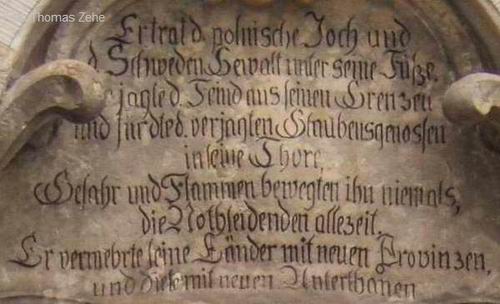 Thomas Zehe
Er trat d. polnische Joch und
d. Schweden Gewalt unter seine Füße.
jagte d. Feind aus seinen Grenzen
und führte d. verjagten Glaubensgenossen
in seine Thore,
Gefahr und Flammen bewegten ihn niemals,
die Nothleidenden allezeit.
Er vermehrte seine Länder mit neuen Provinzen,
und diese mit neuen Unterthanen